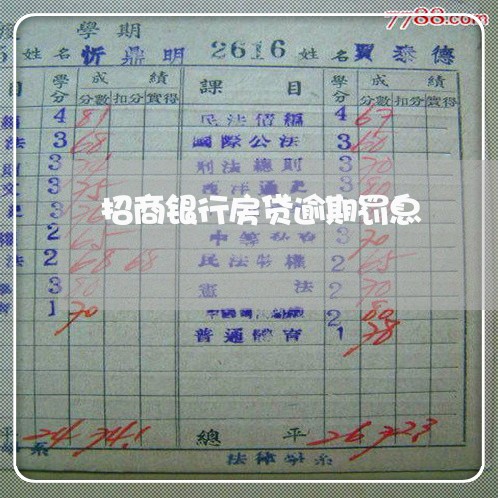 7788.com
學期
姓名 忻鼎明 2616 姓名 賈泰德
目 學分 成績 課目 學分 成績
分數 扣分 實得 分數 扣分 實得
4 81 民法債編 4 67
法 3 68 國際公法 3 60
3 刑法總則 3 70
文 3 75 西洋通史 3 80
招商银行房贷逾期罚息
2 65 3 70
法 2 68 68 民法物權 2 65
3 80 憲法 2 70
1 70 2 80
普通體育 1 78
平 24 74.1 總平 26 72.3
系 法律學系